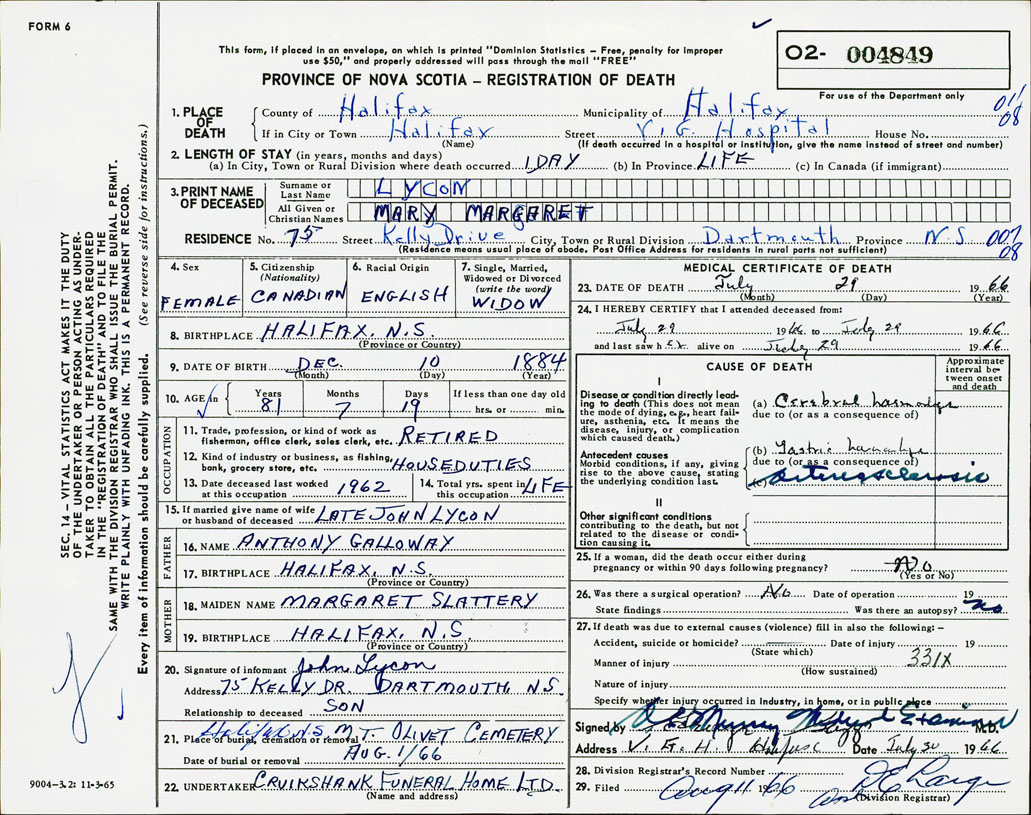 FORM 6
This form, if placed in an envelope, on which is printed "Dominion Statistics – Free, penalty for improper
use $50," and properly addressed will pass through the mail "FREE"
O2- 004849
For use of the Department only
PROVINCE OF NOVA SCOTIA – REGISTRATION OF DEATH
011
08
1. PLACE OF DEATH
County of Halifax Municipality of Halifax
If in City or Town Halifax Street V. G. Hospital House No.
(Name) (If death occurred in a hospital or institution, give the name instead of street and number)
2. LENGTH OF STAY (in years, months and days)
(a) In City, Town or Rural Division where death occurred 1 DAY (b) In Province LIFE (c) In Canada (if immigrant)
3. PRINT NAME OF DECEASED
Surname or Last Name LYCON
All Given or Christian Names MARY MARGARET
RESIDENCE No. 75 Street Kelly Drive City, Town or Rural Division Dartmouth Province N.S. 007
08
(Residence means usual place of abode. Post Office Address for residents in rural parts not sufficient)
4. Sex
FEMALE
5. Citizenship
(Nationality)
CANADIAN
6. Racial Origin
ENGLISH
7. Single, Married,
Widowed or Divorced
(write the word)
WIDOW
8. BIRTHPLACE HALIFAX, N.S.
(Province or Country)
9. DATE OF BIRTH DEC. 10 1884
(Month) (Day) (Year)
10. AGE in Years 81 Months 7 Days 19 If less than one day old
hrs. or min.
OCCUPATION
11. Trade, profession, or kind of work as
fisherman, office clerk, sales clerk, etc. RETIRED
12. Kind of industry or business, as fishing,
bank, grocery store, etc. HOUSEDUTIES
13. Date deceased last worked
at this occupation 1962
14. Total yrs. spent in
this occupation LIFE
15. If married give name of wife
or husband of deceased LATE JOHN LYCON
FATHER
16. NAME ANTHONY GALLOWAY
17. BIRTHPLACE HALIFAX, N.S.
(Province or Country)
MOTHER
18. MAIDEN NAME MARGARET SLATTERY
19. BIRTHPLACE HALIFAX, N.S.
(Province or Country)
20. Signature of informant John Lycon
Address 75 KELLY DR. DARTMOUTH, N.S.
Relationship to deceased SON
21. Place of burial, cremation or removal Halifax N.S. MT. OLIVET CEMETERY
Date of burial or removal AUG. 1/66
22. UNDERTAKER CRUIKSHANK FUNERAL HOME LTD.
(Name and address)
MEDICAL CERTIFICATE OF DEATH
23. DATE OF DEATH July 29 1966
(Month) (Day) (Year)
24. I HEREBY CERTIFY that I attended deceased from:
July 29 1966 to July 29 1966
and last saw her alive on July 29 1966
CAUSE OF DEATH
Approximate
interval be-
tween onset
and death
I
Disease or condition directly lead-
ing to death (This does not mean
the mode of dying, e.g., heart fail-
ure, asthenia, etc. It means the
disease, injury, or complication
which caused death.)
(a) Cerebral
due to (or as a consequence of)
Antecedent causes
Morbid conditions, if any, giving
rise to the above cause, stating
the underlying condition last.
(b) Gastric
due to (or as a consequence of)
(c) Arteriosclerosis
II
Other significant conditions
contributing to the death, but not
related to the disease or condi-
tion causing it.
25. If a woman, did the death occur either during
pregnancy or within 90 days following pregnancy? No
(Yes or No)
26. Was there a surgical operation? No Date of operation 19
State findings Was there an autopsy? no
27. If death was due to external causes (violence) fill in also the following: –
Accident, suicide or homicide? Date of injury 19
(State which)
Manner of injury 331X
(How sustained)
Nature of injury
Specify whether injury occurred in Industry, in home, or in public place
Signed by Murray Medical Examiner M.D.
Address V. G. H. Halifax Date July 30 1966
28. Division Registrar's Record Number
29. Filed Aug 11 1966
(Division Registrar)
SEC. 14 – VITAL STATISTICS ACT MAKES IT THE DUTY
OF THE UNDERTAKER OR PERSON ACTING AS UNDER-
TAKER TO OBTAIN ALL THE PARTICULARS REQUIRED
IN THE "REGISTRATION OF DEATH" AND TO FILE THE
SAME WITH THE DIVISION REGISTRAR WHO SHALL ISSUE THE BURIAL PERMIT.
WRITE PLAINLY WITH UNFADING INK. THIS IS A PERMANENT RECORD.
Every item of information should be carefully supplied. (See reverse side for instructions.)
9004-3.2: 11-3-65